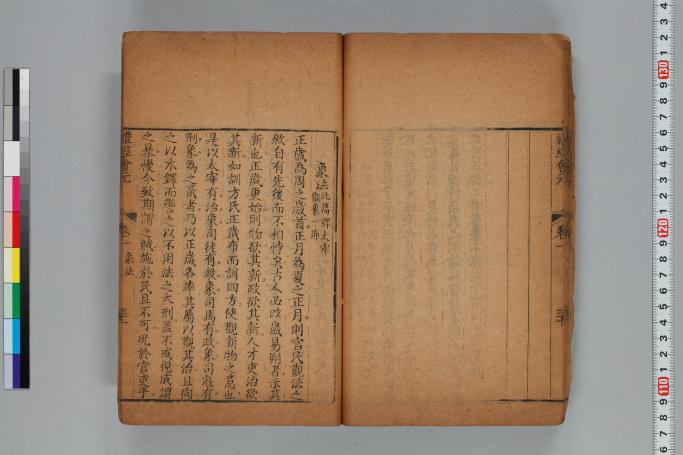 禮經會元
卷一
三十
象法
此篇詳太宰
觀象一節
正歲為周之歲首正月為夏之正月則官民觀法之
敘自有先後而不相悖矣古人必改歲易朔者示其
新也正歲更始則物欲其新政欲其新人才吏治欲
其新如訓方氏正歲布而訓四方使觀新物之意也
是以太宰有治象司徒有教象司馬有政象司寇有
刑象為之貳者乃以正歲各率其屬以觀其治且徇
之以木鐸而警之以不用法之大刑蓋不戒視成謂
之暴慢令致期謂之賊施於民且不可況於官吏乎
禮經會元
卷一 象法
三十一